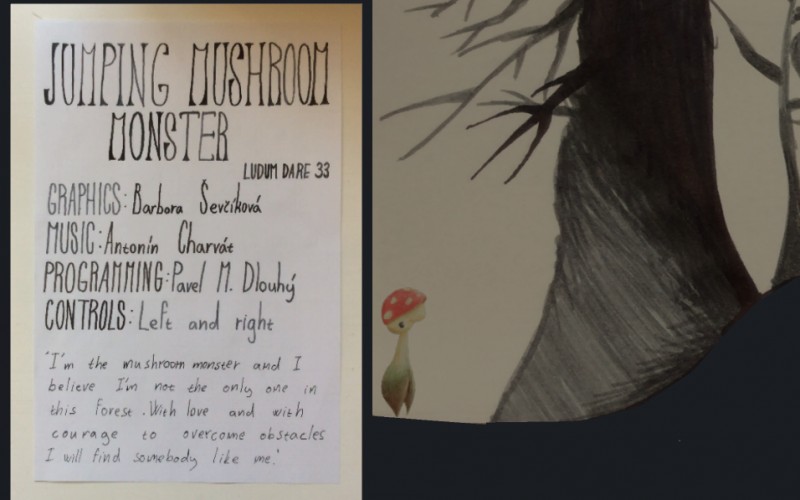 JUMPING MUSHROOM
MONSTER
LUDUM DARE 33
GRAPHICS: Barbora Ševčíková
MUSIC: Antonín Charvát
PROGRAMMING: Pavel M. Dlouhý
CONTROLS: Left and right
"I'm the mushroom monster and I
believe I'm not the only one in
this forest. With love and with
courage to overcome obstacles
I will find somebody like me."